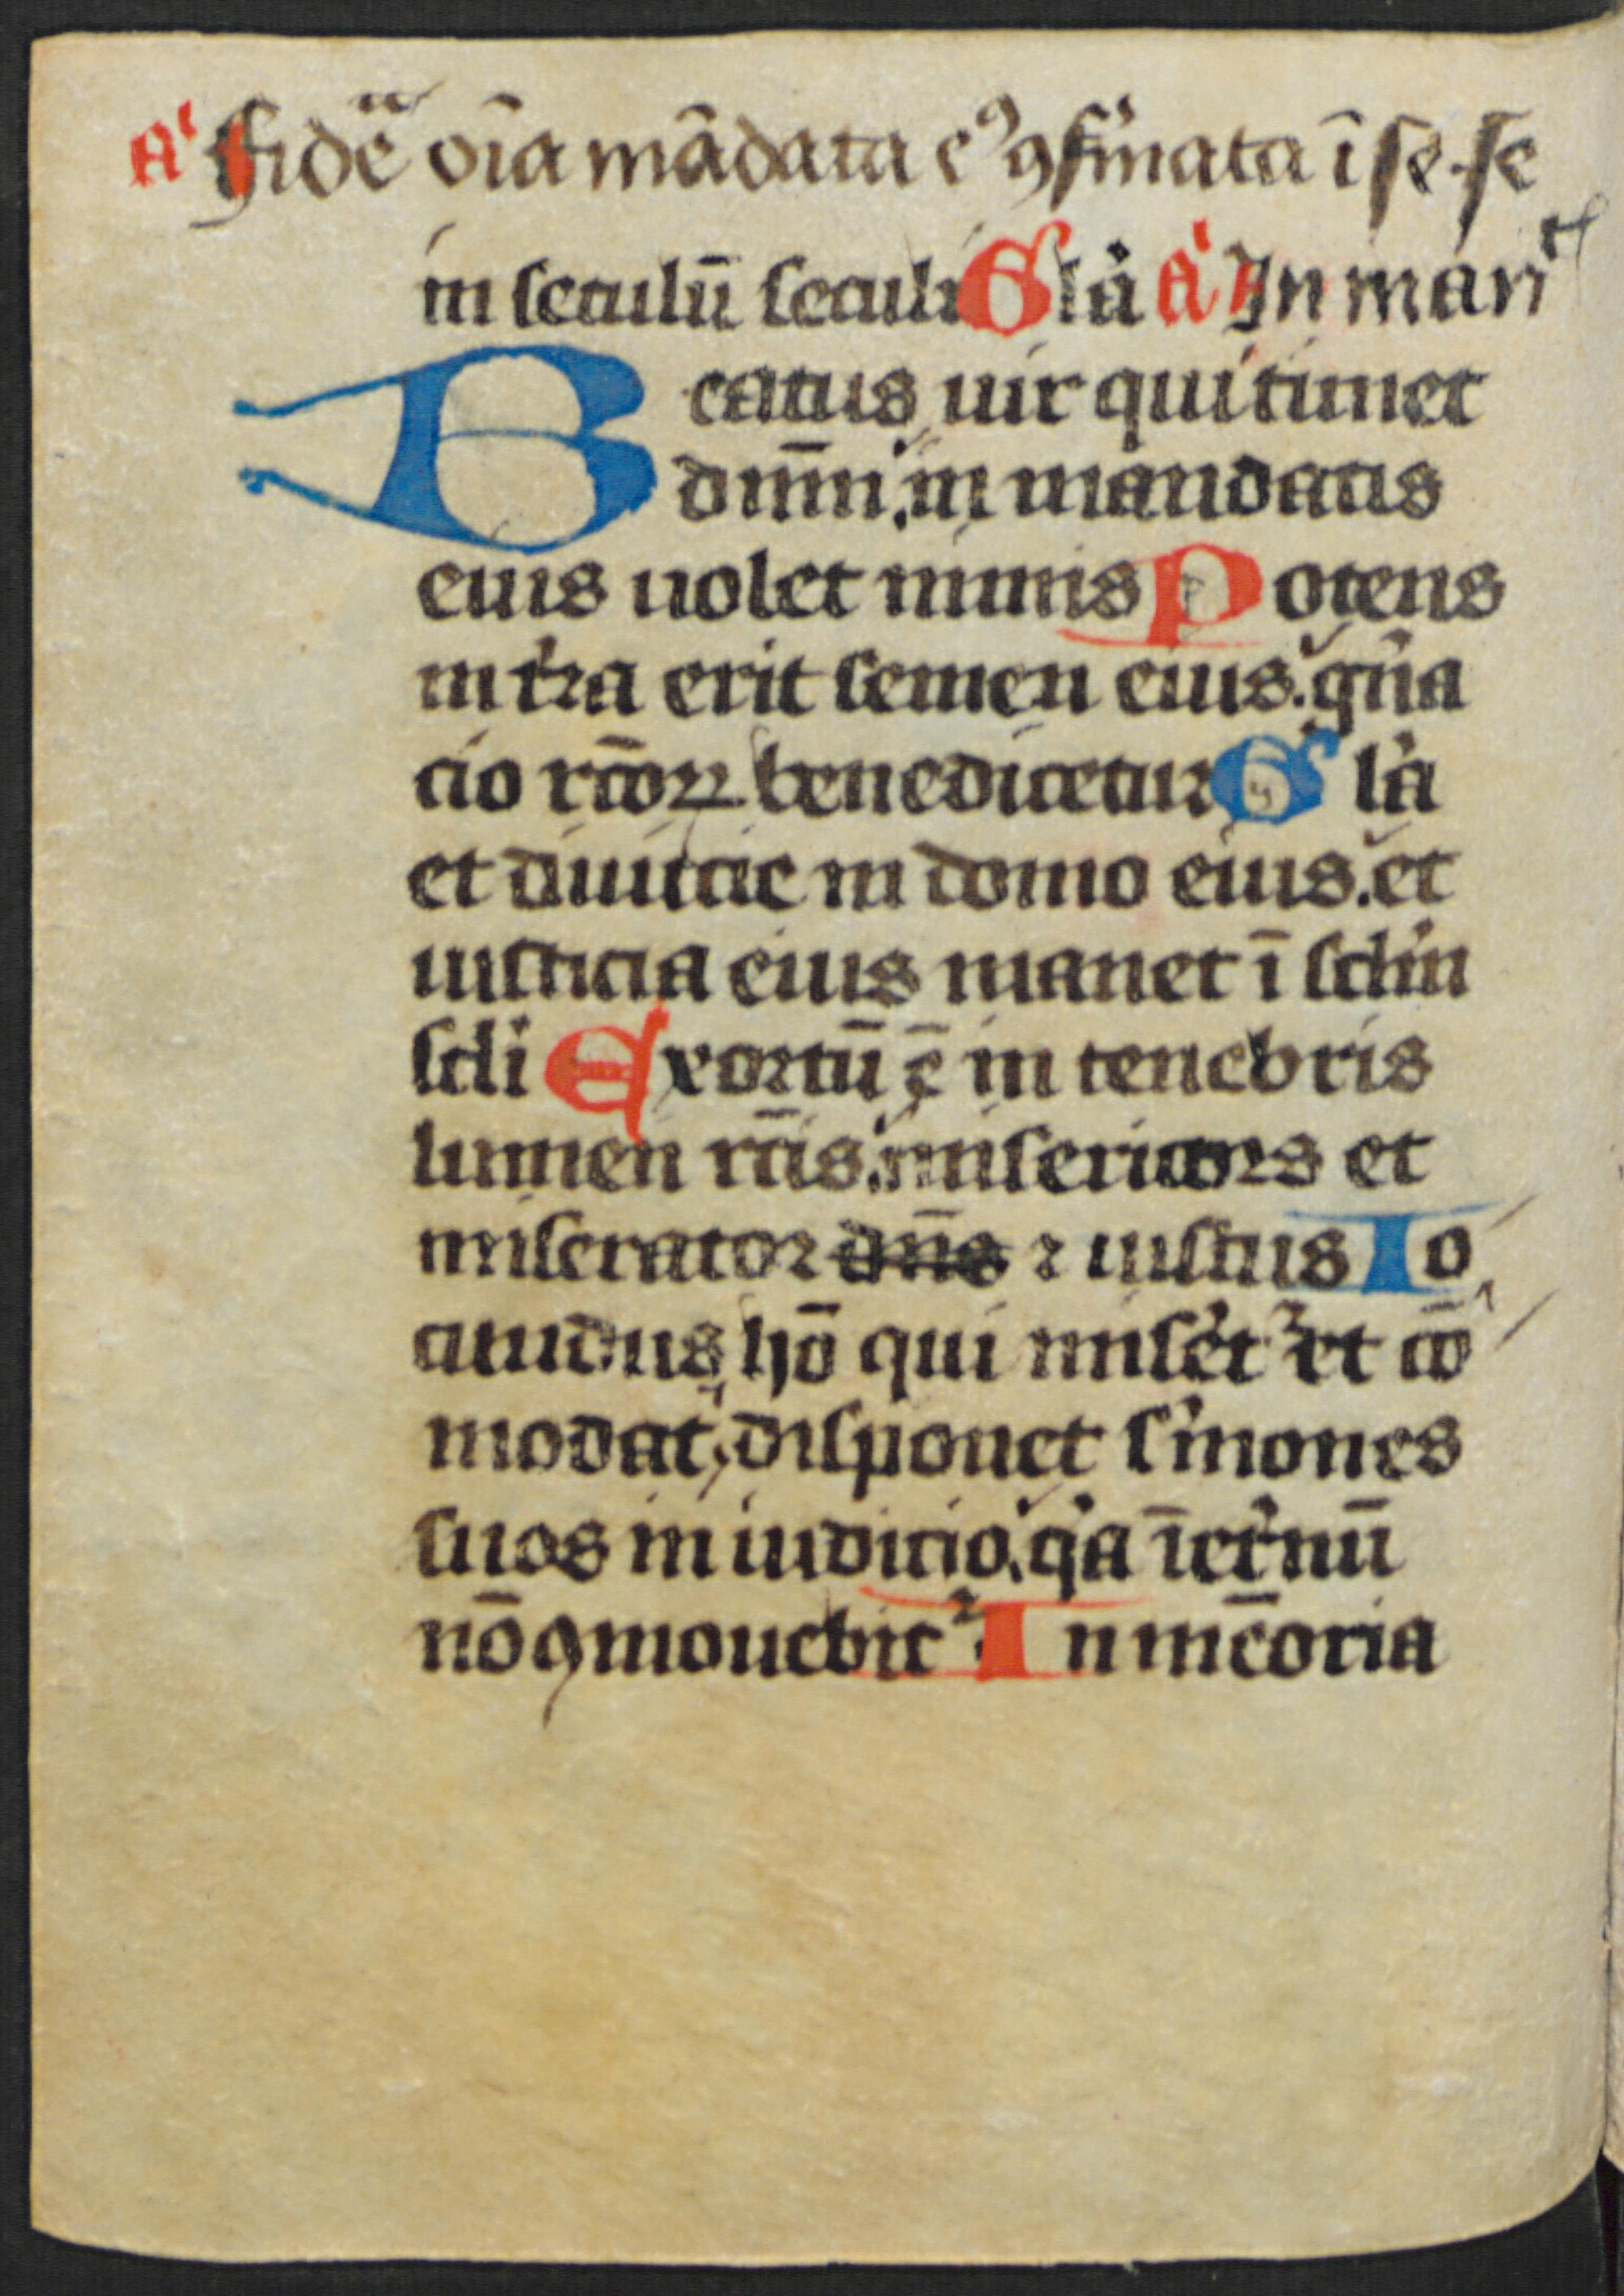 A' Fidē oīa mādata e⁹ ꝯf'mata ī se. se
in seculū seculi Gl'a A' In man
Beatus uir qui timet
dn̄m. in mandatis
eius uolet nimis Potens
in t'ra erit semen eius. gn̄a
cio rc̄oꝝ benedicetur Gl'a
et diuitie in domo eius. et
iusticia eius manet ī sclm̄
scli Exortū ē in tenebris
lumen rc̄is. misericors et
miserator dn̄s ⁊ iustus Io
cundus hō qui miser̉t᷑ et cō
modat, disponet s'mones
suos in iudicio. q'a ī et'nū
nō ꝯmouebit᷑ In mēoria